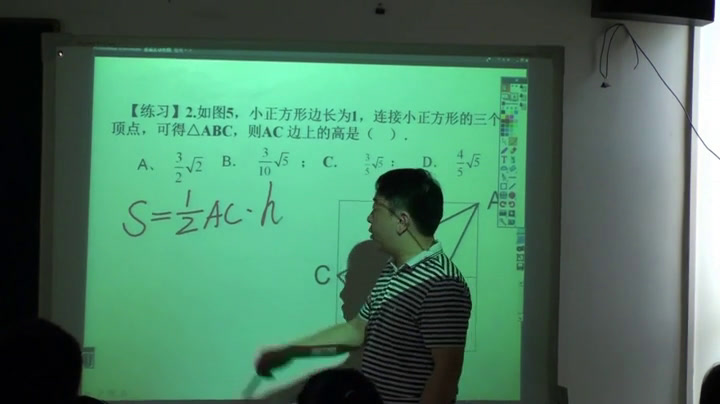 【练习】2.如图5，小正方形边长为1，连接小正方形的三个
顶点，可得△ABC，则AC 边上的高是（ ）.
A、 3/2 √2 B. 3/10 √5 ； C. 3/5 √5 ； D. 4/5 √5
S=1/2 AC·h
A
C